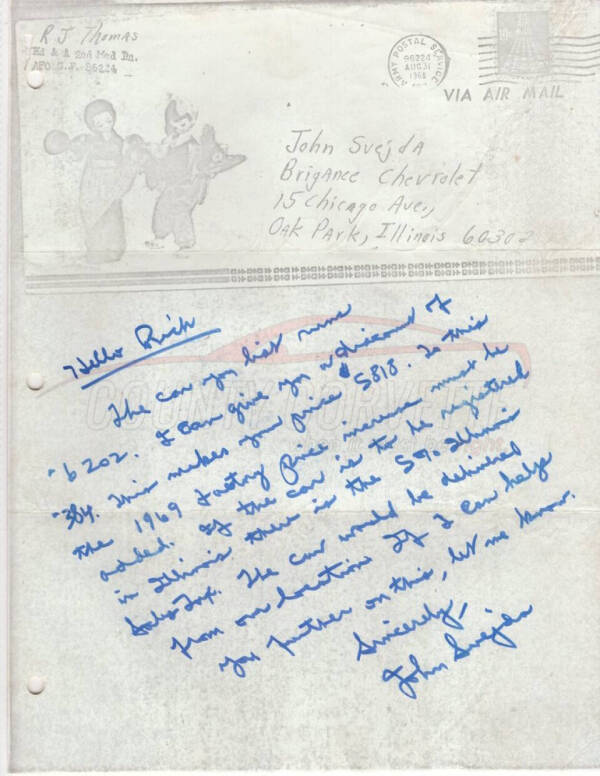 R J Thomas
Hd & A 2nd Med Bn.
APO S.F. 96224
ARMY POSTAL SERVICE
96224
AUG 31
1968
VIA AIR MAIL
John Svejda
Brigance Chevrolet
15 Chicago Ave.,
Oak Park, Illinois 60302
Hello Rick
The car you list runs
$6202. I can give you a discount of
$384. This makes you price $5818. To this
the 1969 factory price increase must be
added. If the car is to be registered
in Illinois there is the 5% Illinois
Sales Tax. The car would be delivered
from our location. If I can help
you further on this, let me know.
Sincerely,
John Svejda
COUNTY CORVETTE